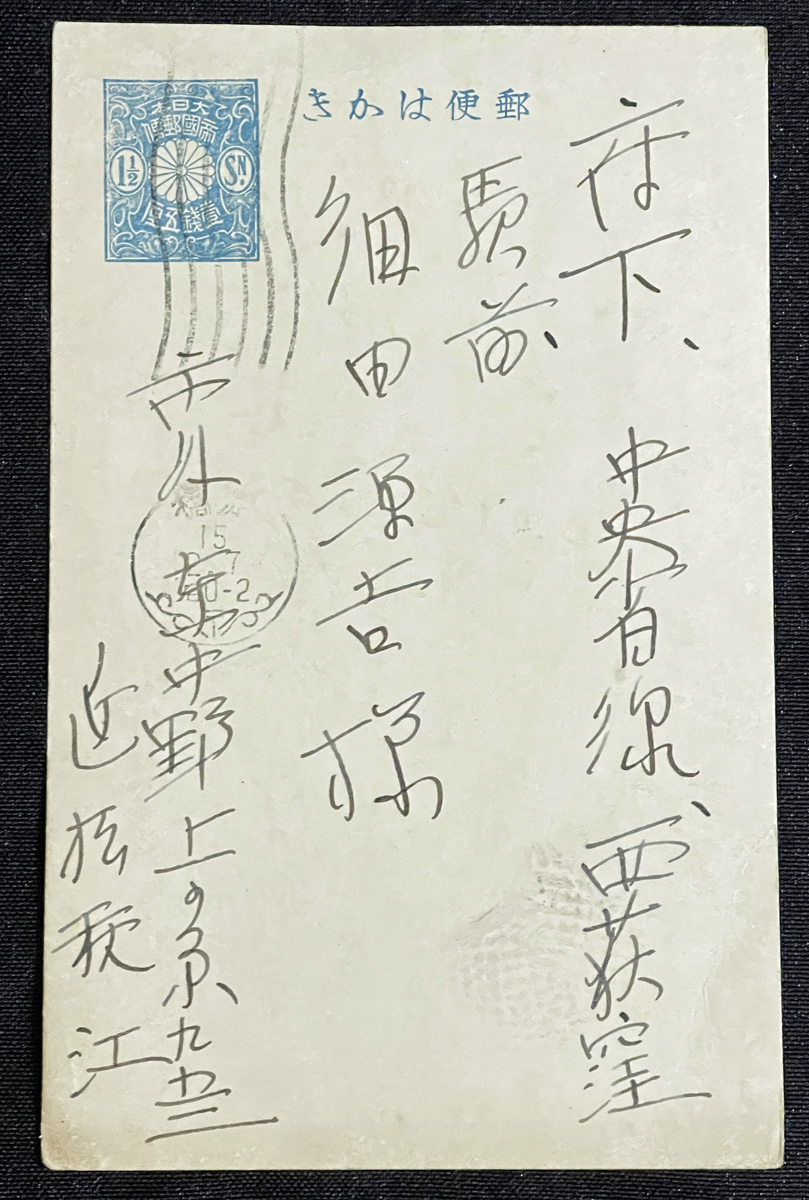 郵便はかき
大日本
帝國郵便
1½ SN.
壹錢五厘
府下、中央省線、西荻窪
駅前、
細田源吉様
市外 東中野上の原九三
近松秋江
15
0-2